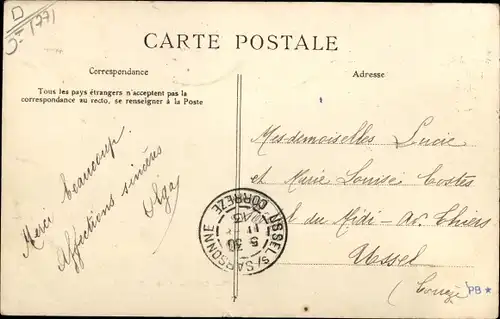 D
CARTE POSTALE
Correspondance
Tous les pays étrangers n'acceptent pas la
correspondance au recto, se renseigner à la Poste
Merci beaucoup.
Affections sincères
Olga
Adresse
Mesdemoiselles Lucie
et Marie Louise Costes
du Midi - Av. Thiers
Ussel
(Corrèze)
USSEL S/SARSONNE
CORREZE
5 30
PB